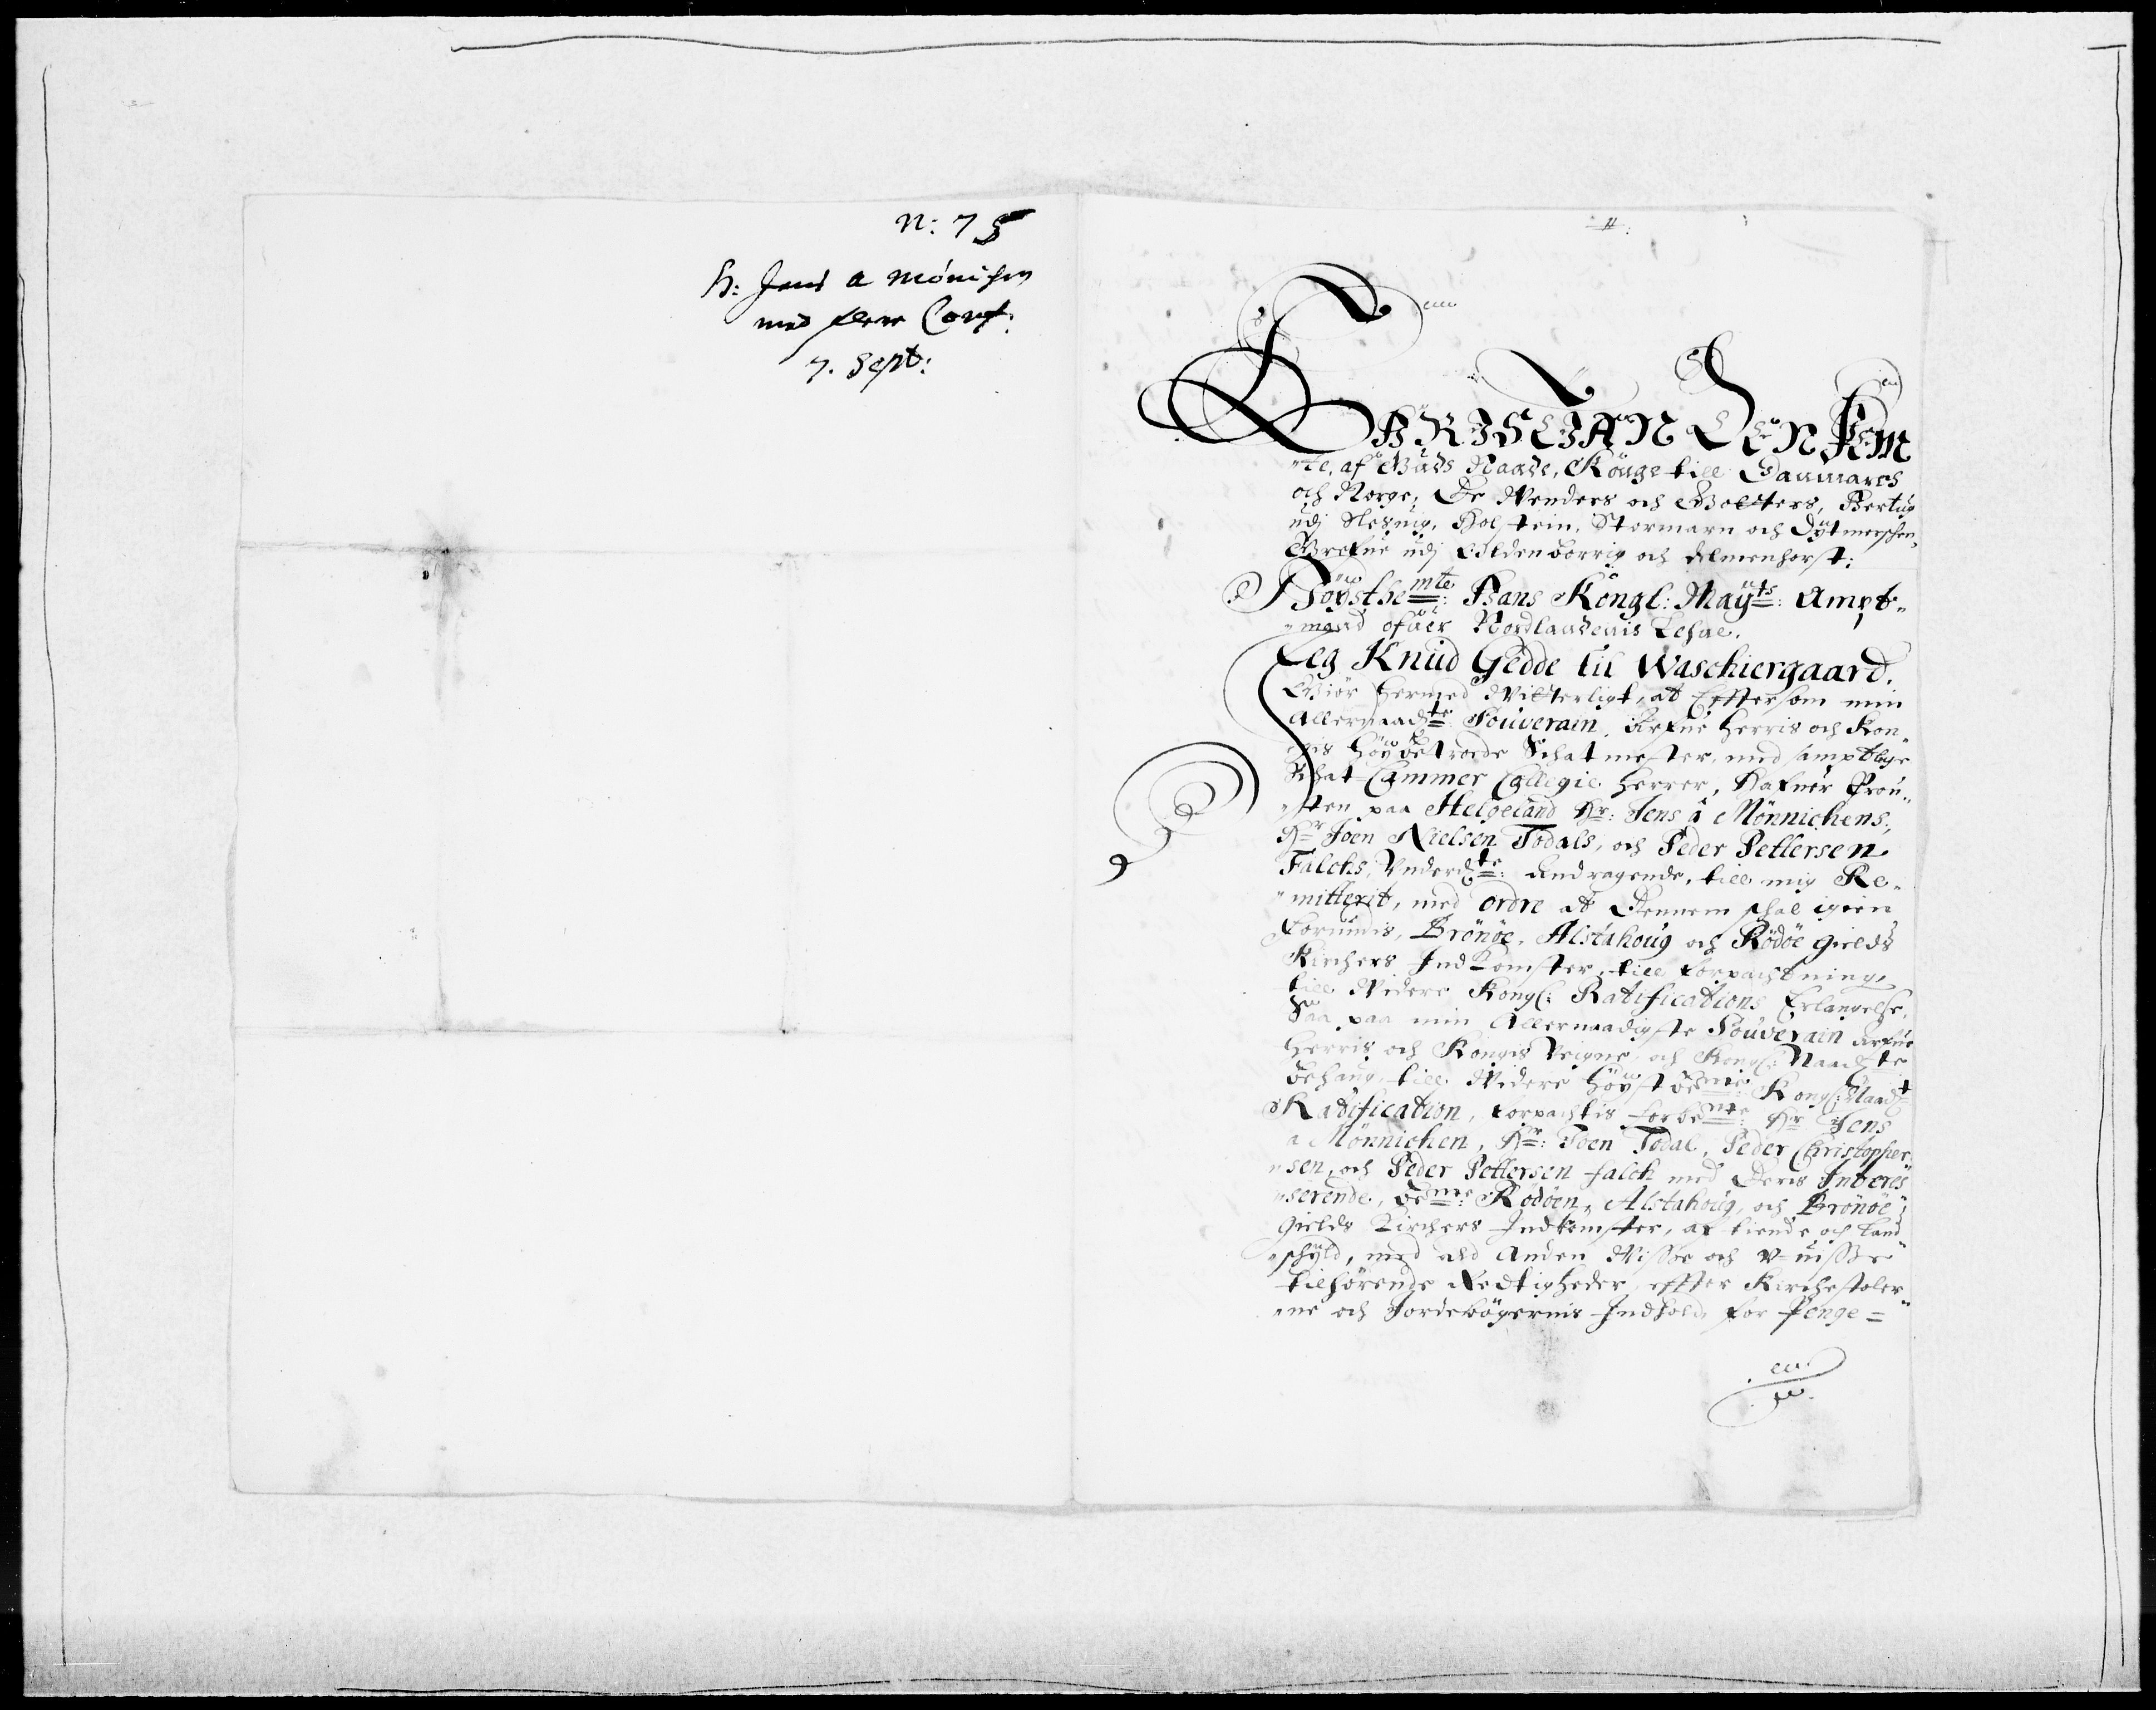 N: 75
H: Jens a Mönichen
med flere Conf:
7. Sept:
CHRISTIAN DEN FEM
"te, af Guds Naade, Konge till Danmarch
och Norge, De Wenders och Gotters, Hertug
udj Slesvig, Holstein, Stormarn och Dytmerschen,
Grefue udj Oldenborrig och Delmenhorst:
Höystbemte: Hans Kongl: Mayts: Ampt"
"mand ofuer Nordlandenis Lehne.
Jeg Knud Gedde til Waschiergaard.
Giör hermed Witterligt, at Efftersom min
Allernaadte Souverain Arfue Herris och Kon"
gis Höybetroede Schatmester, med samptlige
Schat Cammer Collegie Herrer, Hafuer Prou"
"sten paa Helgeland Hr: Jens á Mönnichens,
Hr Joen Nielsen Todals, och Peder Pettersen
Falchs, Underdte: Andragende, till mig Re"
"mitterit, med ordre at Dennem schal igien
Forundis, Brönöe, Alstahoug och Rödöe gields
Kirchers Indkomster, till forpachtning,
till Widere Kongl: Ratifications Erlangelse,
Saa paa min Allernaadigste Souverain Arfue
Herris och Kongis Veigne, och Kongl: Naadste
behaug, till Widere Höystbemte: Kongl: Naadt
Ratification, forpachtis forbemte: Hr Jens
a Mönnichen, Hr: Joen Todal, Peder Christopher
"sen, och Peder Pettersen Falch med Deris Interes
"serende, bemte: Rödöen, Alstahoug, och Brönöe
Gields Kirchers Indkomster, af tiende och Land
"schyld, med ald Anden Wisse och Uuisse
tilhörende Rechtigheder, effter Kirchestoler"
"ne och Jordebögernis Indhold, for Penge=